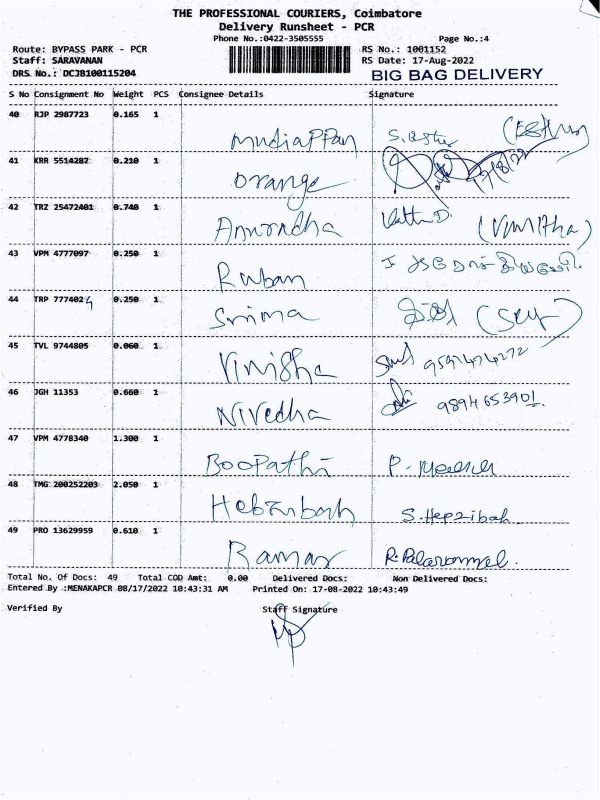 THE PROFESSIONAL COURIERS, Coimbatore
Delivery Runsheet - PCR
Phone No.:0422-3505555 Page No.:4
Route: BYPASS PARK - PCR RS No.: 1001152
Staff: SARAVANAN RS Date: 17-Aug-2022
DRS No.: DCJB100115204 BIG BAG DELIVERY
S No Consignment No Weight PCS Consignee Details Signature
40 RJP 2987723 0.165 1 Mudiappan
41 KRR 5514287 0.210 1 Orange 17/8/22
42 TRZ 25472401 0.740 1 Anuradha (Vinitha)
43 VPM 4777097 0.250 1 Ruban
44 TRP 7774024 0.250 1
45 TVL 9744805 0.060 1 Vinisha
46 JGH 11353 0.660 1 Nivedha 9894653901
47 VPM 4778340 1.300 1 Boopathi
48 TMG 200252203 2.050 1 S. Hepzibah
49 PRO 13629959 0.610 1 Ramar
Total No. Of Docs: 49 Total COD Amt: 0.00 Delivered Docs: Non Delivered Docs:
Entered By :MENAKAPCR 08/17/2022 10:43:31 AM Printed On: 17-08-2022 10:43:49
Verified By Staff Signature